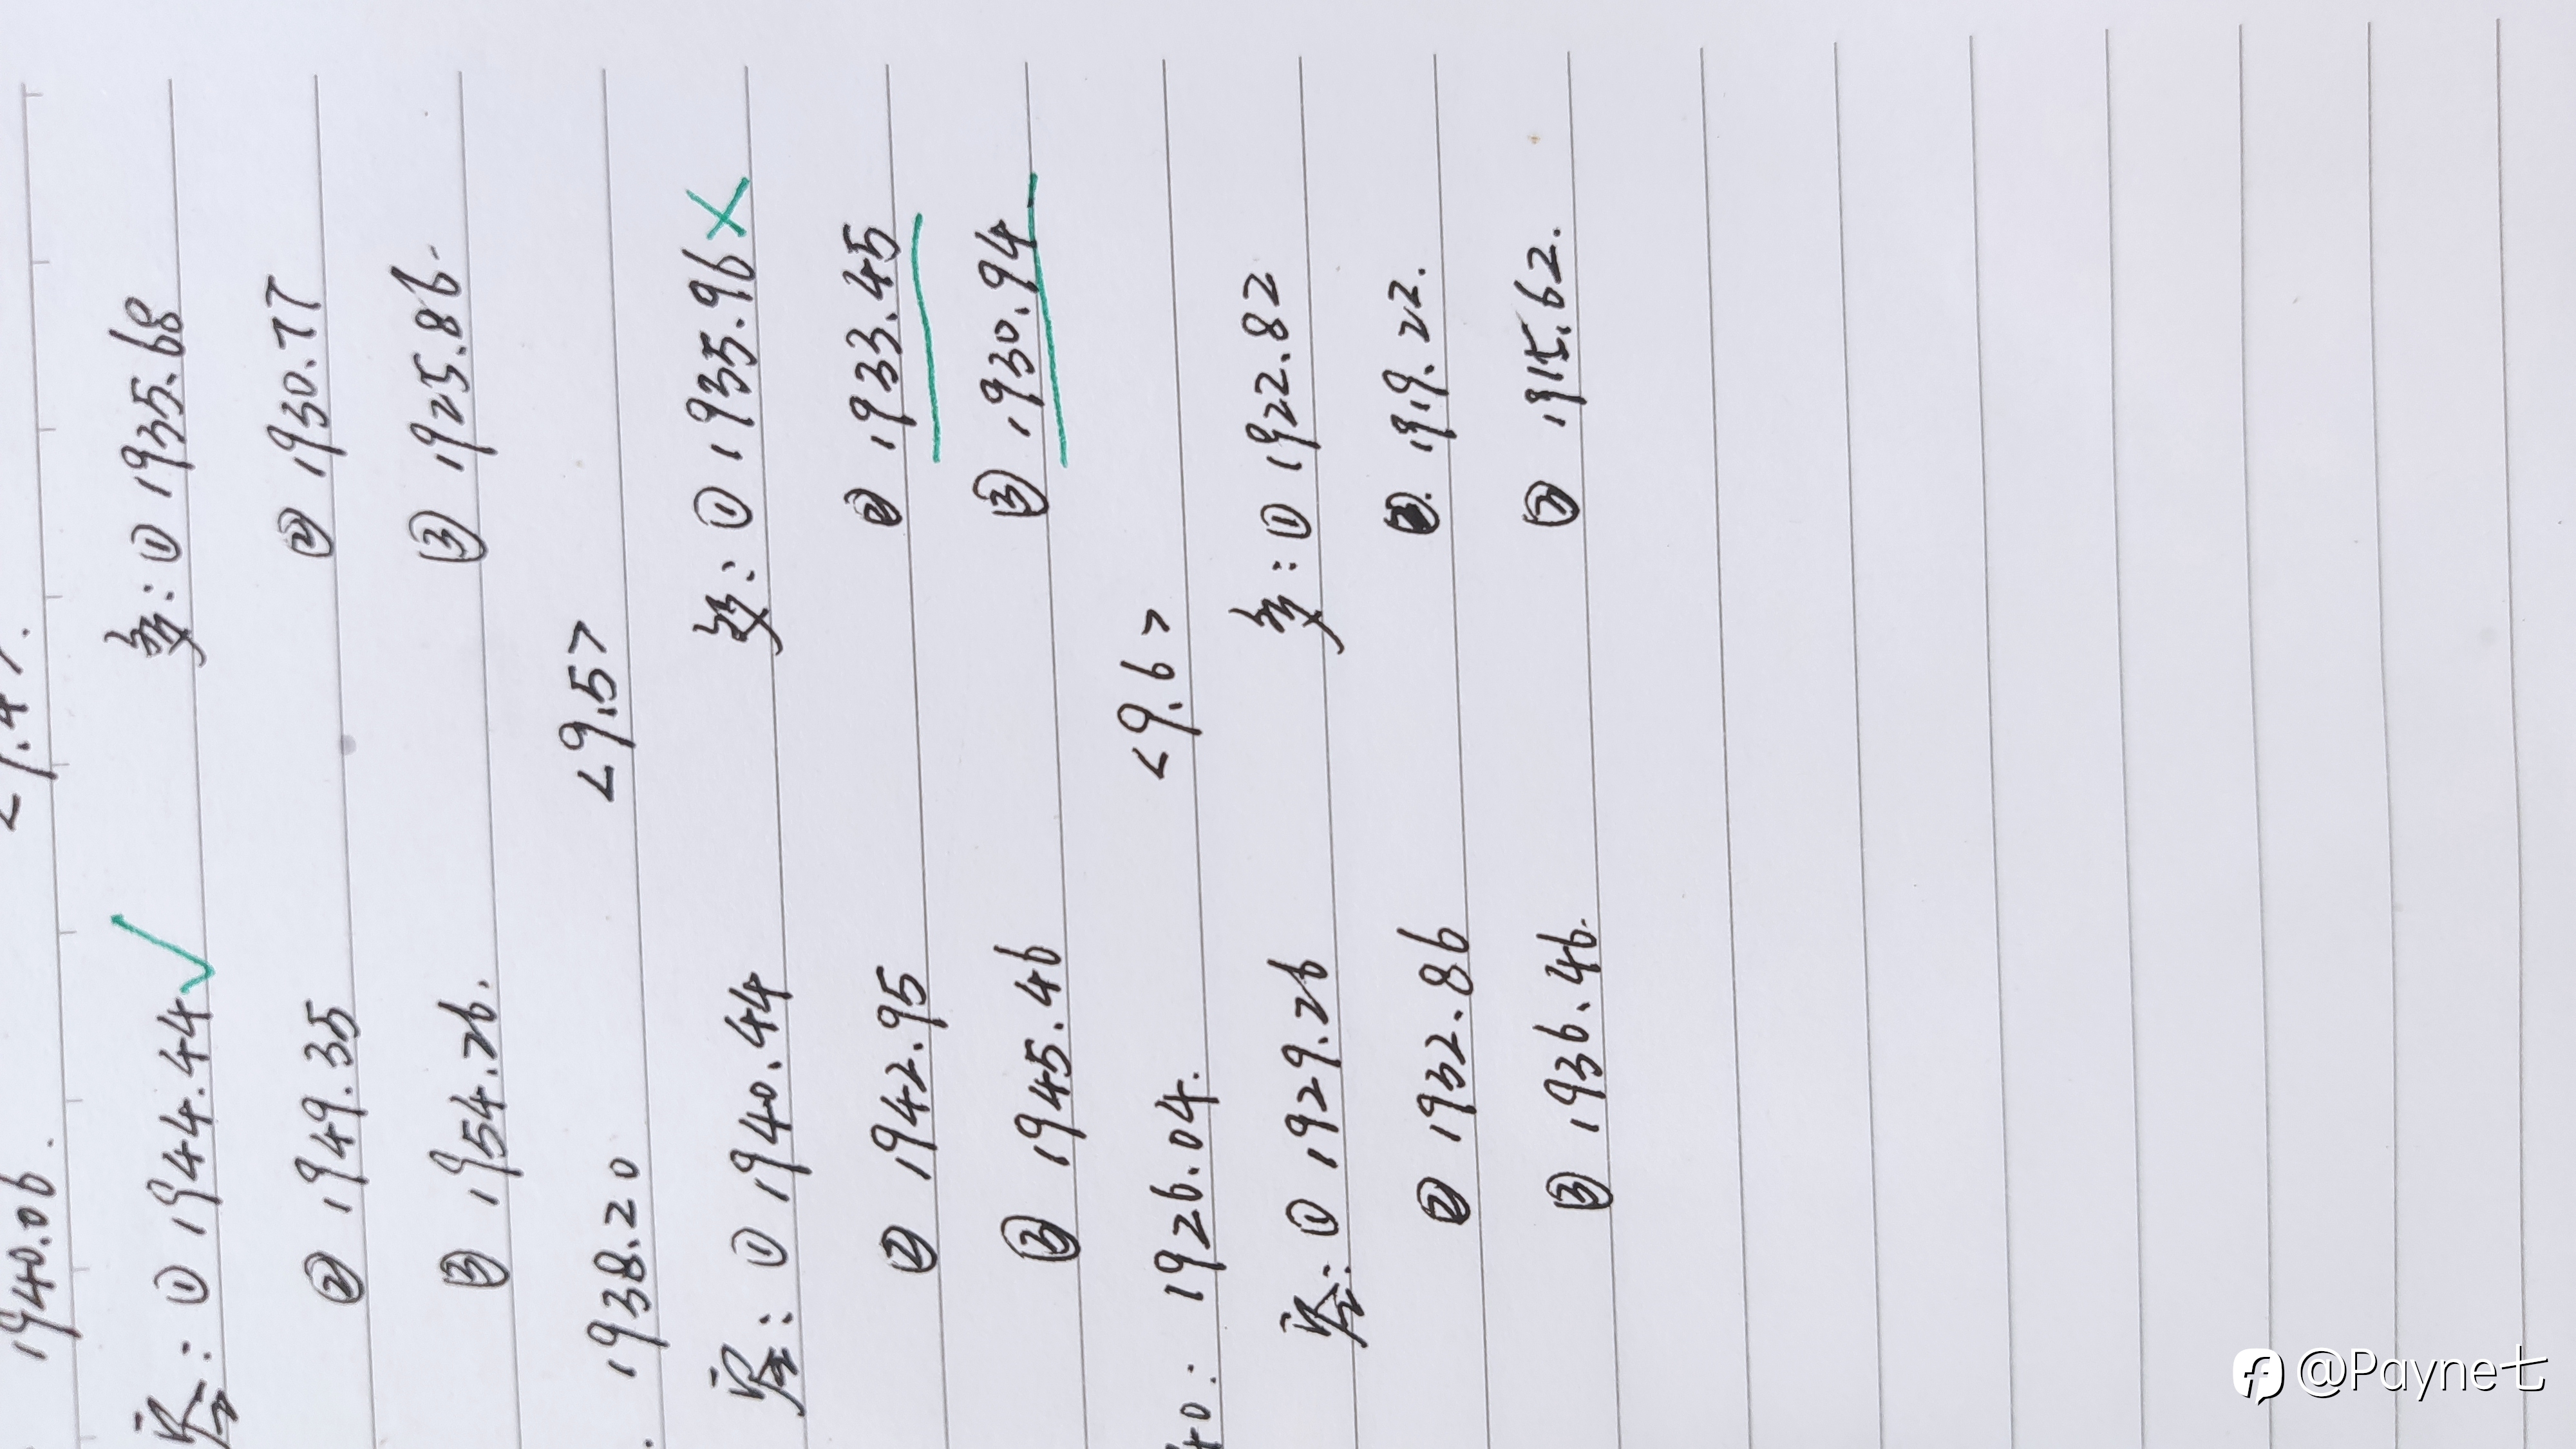 1940.06.
空: ① 1944.44 多: ① 1935.68
② 1949.35 ② 1930.77
③ 1954.26. ③ 1925.86.
1938.20 <9.5>
空: ① 1940.44 多: ① 1935.96
② 1942.95 ② 1933.45
③ 1945.46 ③ 1930.94
1926.04. <9.6>
空: ① 1929.26 多: ① 1922.82
② 1932.86 ② 1919.22.
③ 1936.46. ③ 1915.62.
@Payne七